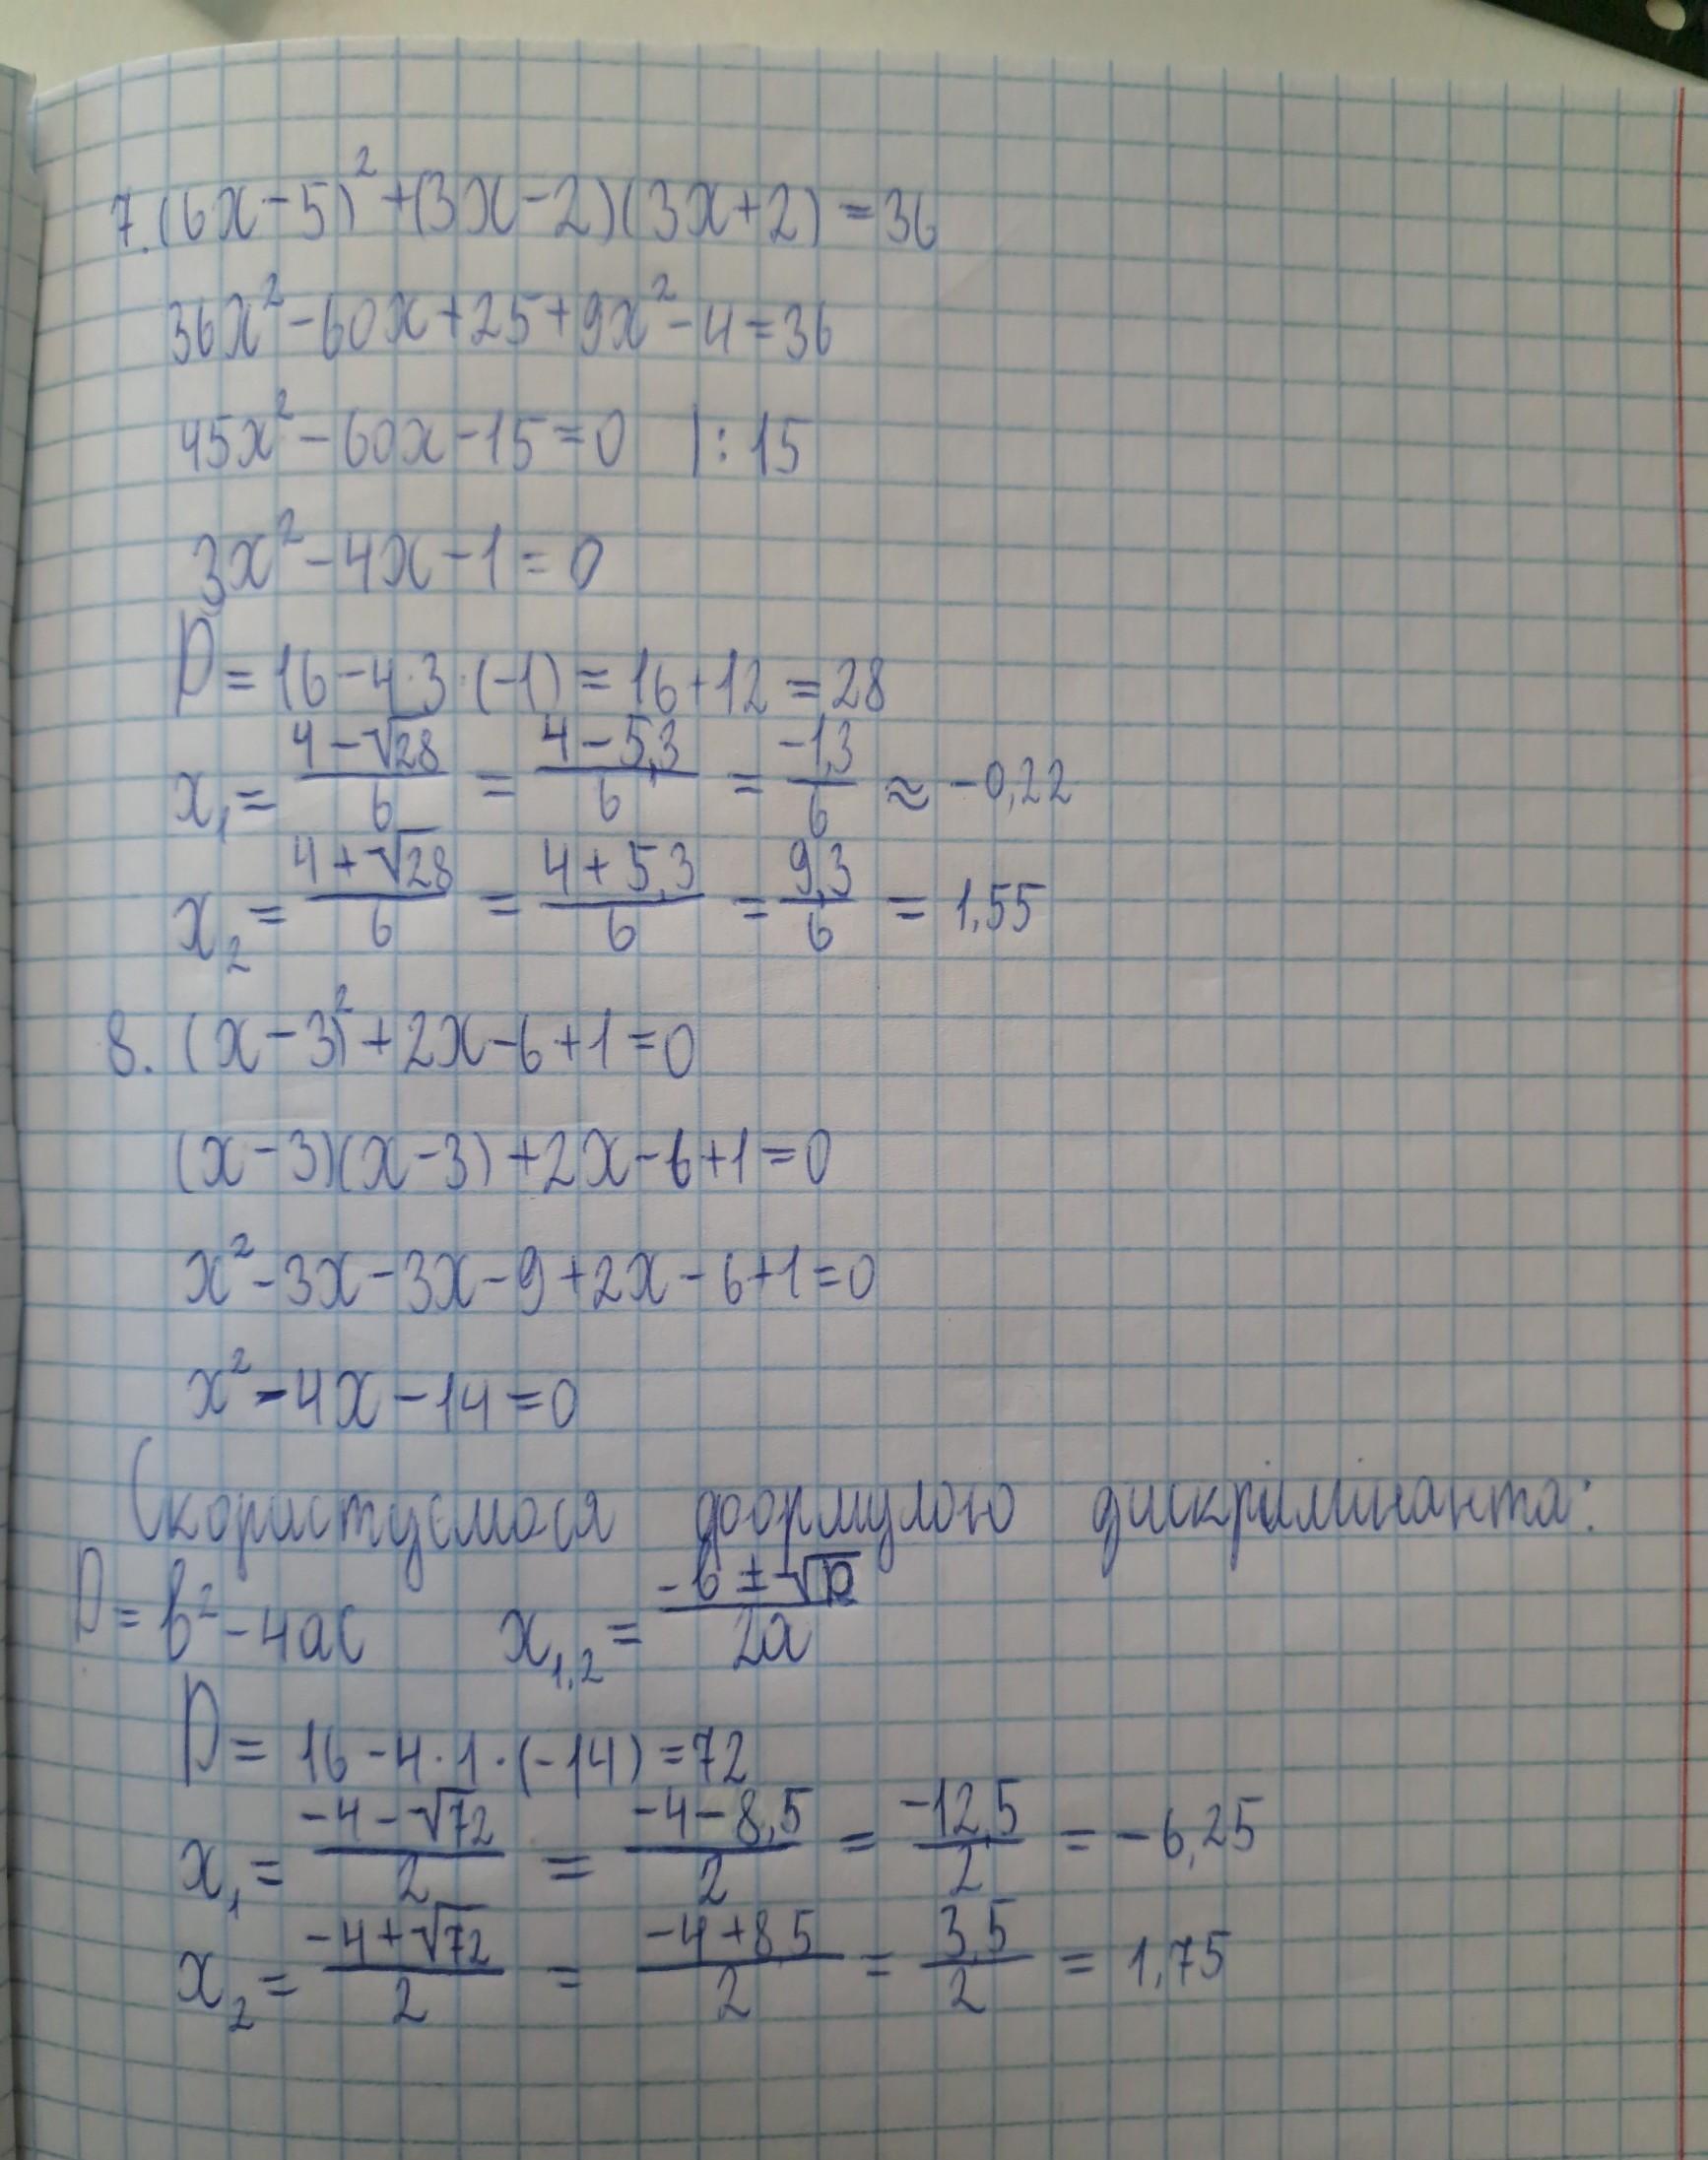 7. (6x-5)² + (3x-2)(3x+2) = 36
36x² - 60x + 25 + 9x² - 4 = 36
45x² - 60x - 15 = 0 | : 15
3x² - 4x - 1 = 0
D = 16 - 4·3·(-1) = 16 + 12 = 28
x₁ = (4 - √28)/6 = (4 - 5,3)/6 = -1,3/6 ≈ -0,22
x₂ = (4 + √28)/6 = (4 + 5,3)/6 = 9,3/6 = 1,55
8. (x-3)² + 2x - 6 + 1 = 0
(x-3)(x-3) + 2x - 6 + 1 = 0
x² - 3x - 3x - 9 + 2x - 6 + 1 = 0
x² - 4x - 14 = 0
Скористуємося формулою дискримінанта:
D = b² - 4ac x₁,₂ = (-b ± √D)/2a
D = 16 - 4·1·(-14) = 72
x₁ = (-4 - √72)/2 = (-4 - 8,5)/2 = -12,5/2 = -6,25
x₂ = (-4 + √72)/2 = (-4 + 8,5)/2 = 3,5/2 = 1,75